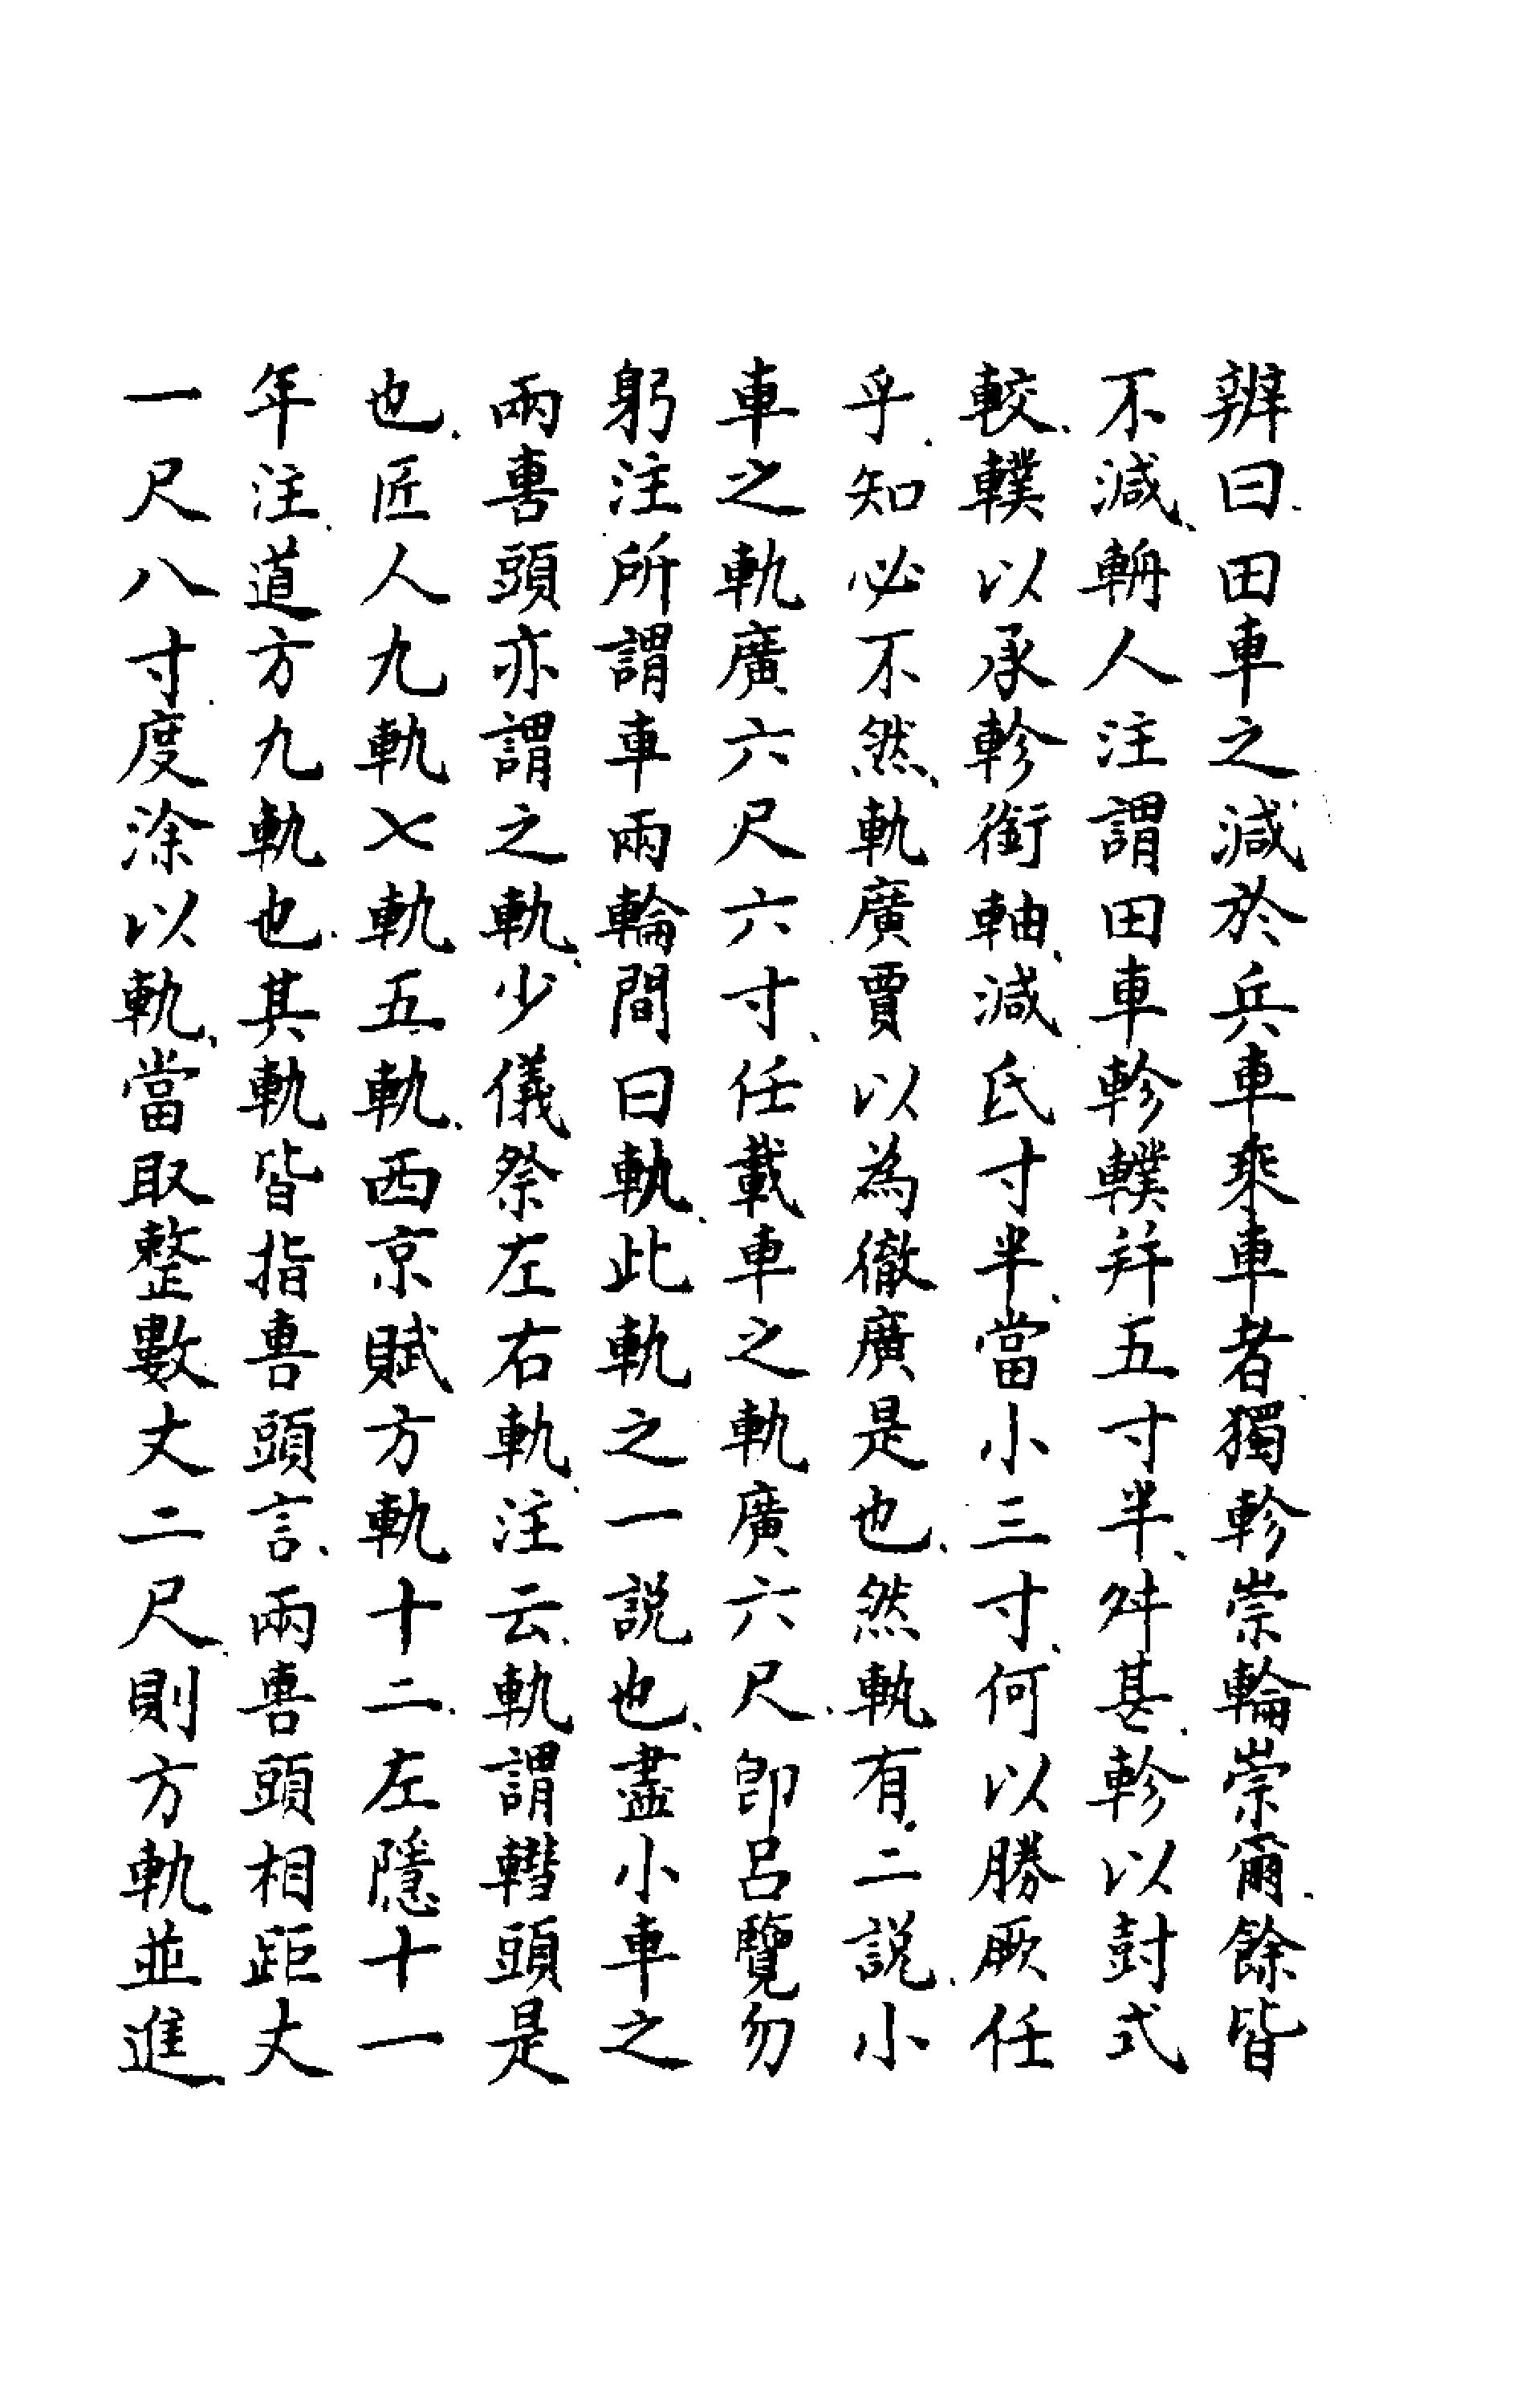 辨曰、田車之減於兵車乘車者、獨軫崇輪崇爾、餘皆
不減、輈人注謂田車軫轐并五寸半、舛甚、軫以封式
較、轐以承軫銜軸、減氐寸半、當小三寸、何以勝厥任
乎、知必不然、軌廣賈以為徹廣是也、然軌有二説、小
車之軌廣六尺六寸、任載車之軌廣六尺、即呂覽勿
躬注所謂車兩輪間曰軌、此軌之一説也、盡小車之
兩軎頭亦謂之軌、少儀祭左右軌、注云、軌謂轊頭是
也、匠人九軌七軌五軌、西京賦方軌十二、左隱十一
年注、道方九軌也、其軌皆指軎頭言、兩軎頭相距丈
一尺八寸、度涂以軌、當取整數丈二尺、則方軌並進、